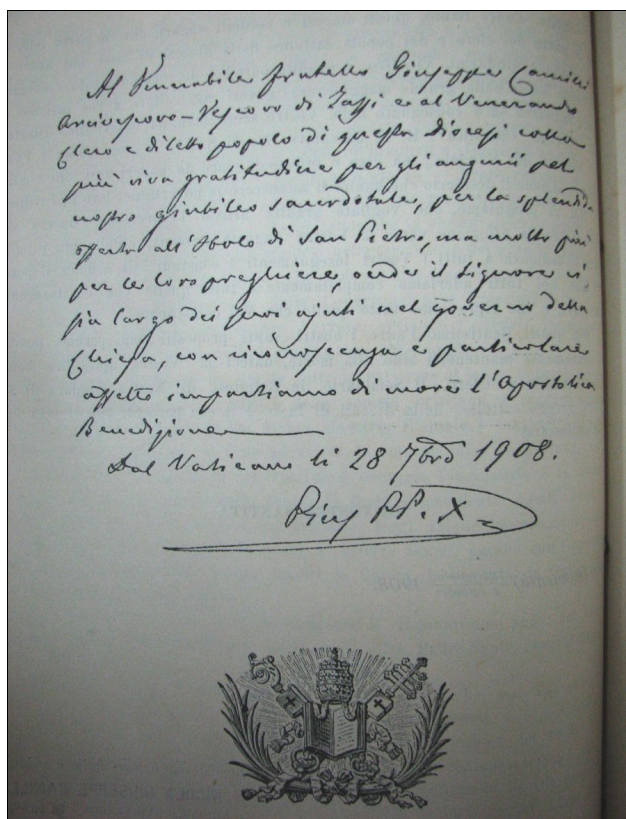 Al Venerabile fratello Giuseppe Camilli
Arcivescovo-Vescovo di Jassi e al Venerando
Clero e diletto popolo di questa Diocesi colla
più viva gratitudine per gli augurii pel
nostro giubileo sacerdotale, per la splendida
offerta all'Obolo di San Pietro, ma molto più
per le loro preghiere onde il Signore ci
sia largo dei suoi ajuti nel governo della
Chiesa, con riconoscenza e particolare
affetto impartiamo di cuore l'Apostolica
Benedizione
Dal Vaticano li 28 7brē 1908.
Pius PP. X